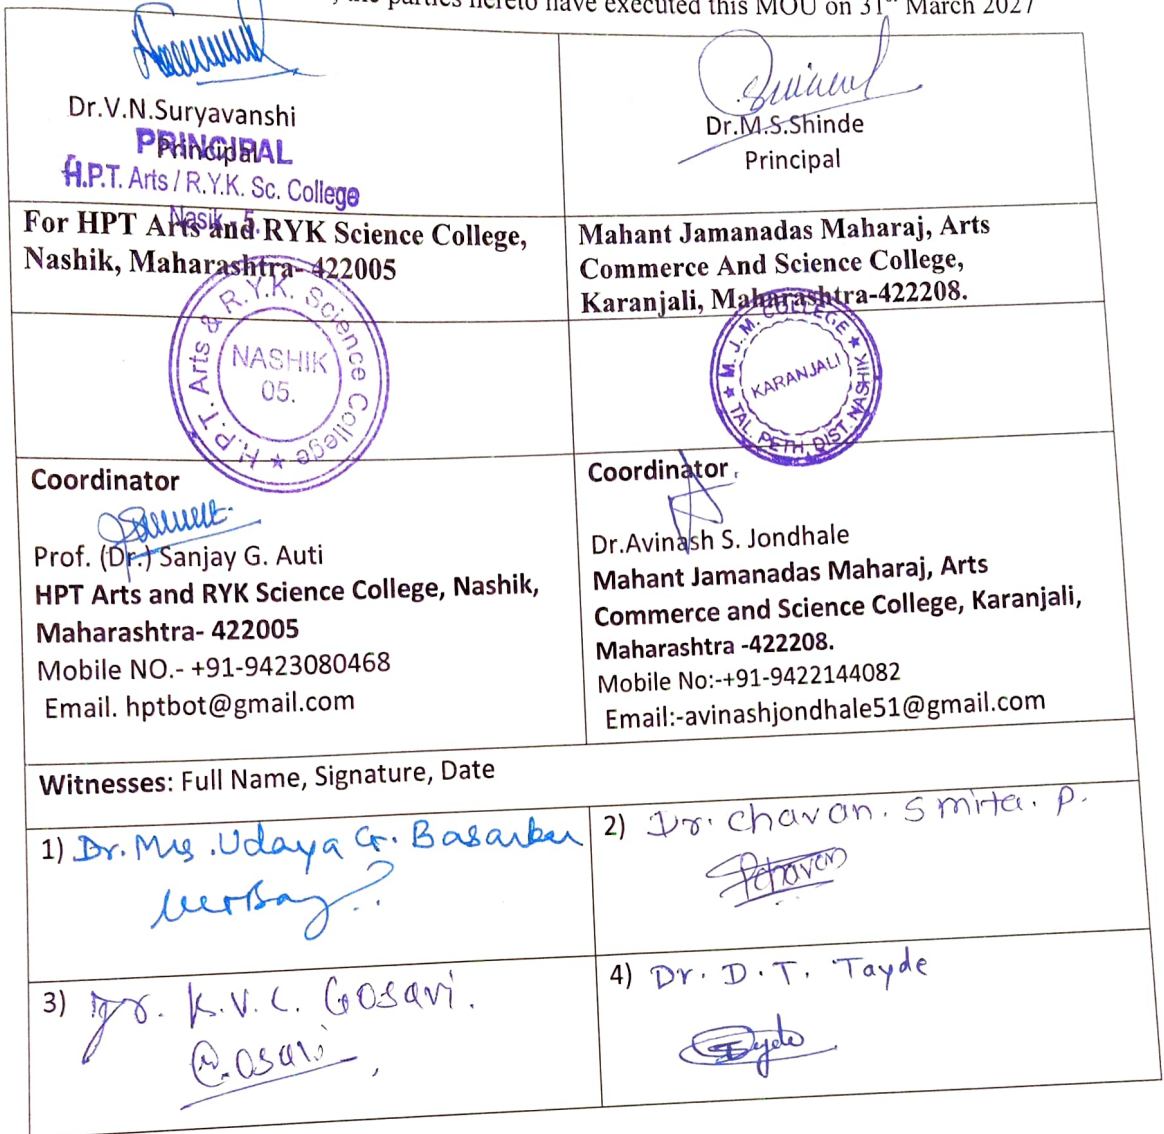 the parties hereto have executed this MOU on 31st March 2027
Dr.V.N.Suryavanshi
Principal
PRINCIPAL
H.P.T. Arts / R.Y.K. Sc. College
Nasik - 5.
Dr.M.S.Shinde
Principal
For HPT Arts and RYK Science College,
Nashik, Maharashtra- 422005
Mahant Jamanadas Maharaj, Arts
Commerce And Science College,
Karanjali, Maharashtra-422208.
H.P.T. Arts & R.Y.K. Science College ★
NASHIK
05.
★ M. J. M. COLLEGE ★
TAL. PETH, DIST. NASHIK
KARANJALI
Coordinator
Prof. (Dr.) Sanjay G. Auti
HPT Arts and RYK Science College, Nashik,
Maharashtra- 422005
Mobile NO.- +91-9423080468
Email. hptbot@gmail.com
Coordinator
Dr.Avinash S. Jondhale
Mahant Jamanadas Maharaj, Arts
Commerce and Science College, Karanjali,
Maharashtra -422208.
Mobile No:-+91-9422144082
Email:-avinashjondhale51@gmail.com
Witnesses: Full Name, Signature, Date
1) Dr. Mrs. Udaya G. Basarkar
2) Dr. Chavan. Smita. P.
Schavan
3) Dr. K.V.C. Gosavi.
Gosavi
4) Dr. D.T. Tayde